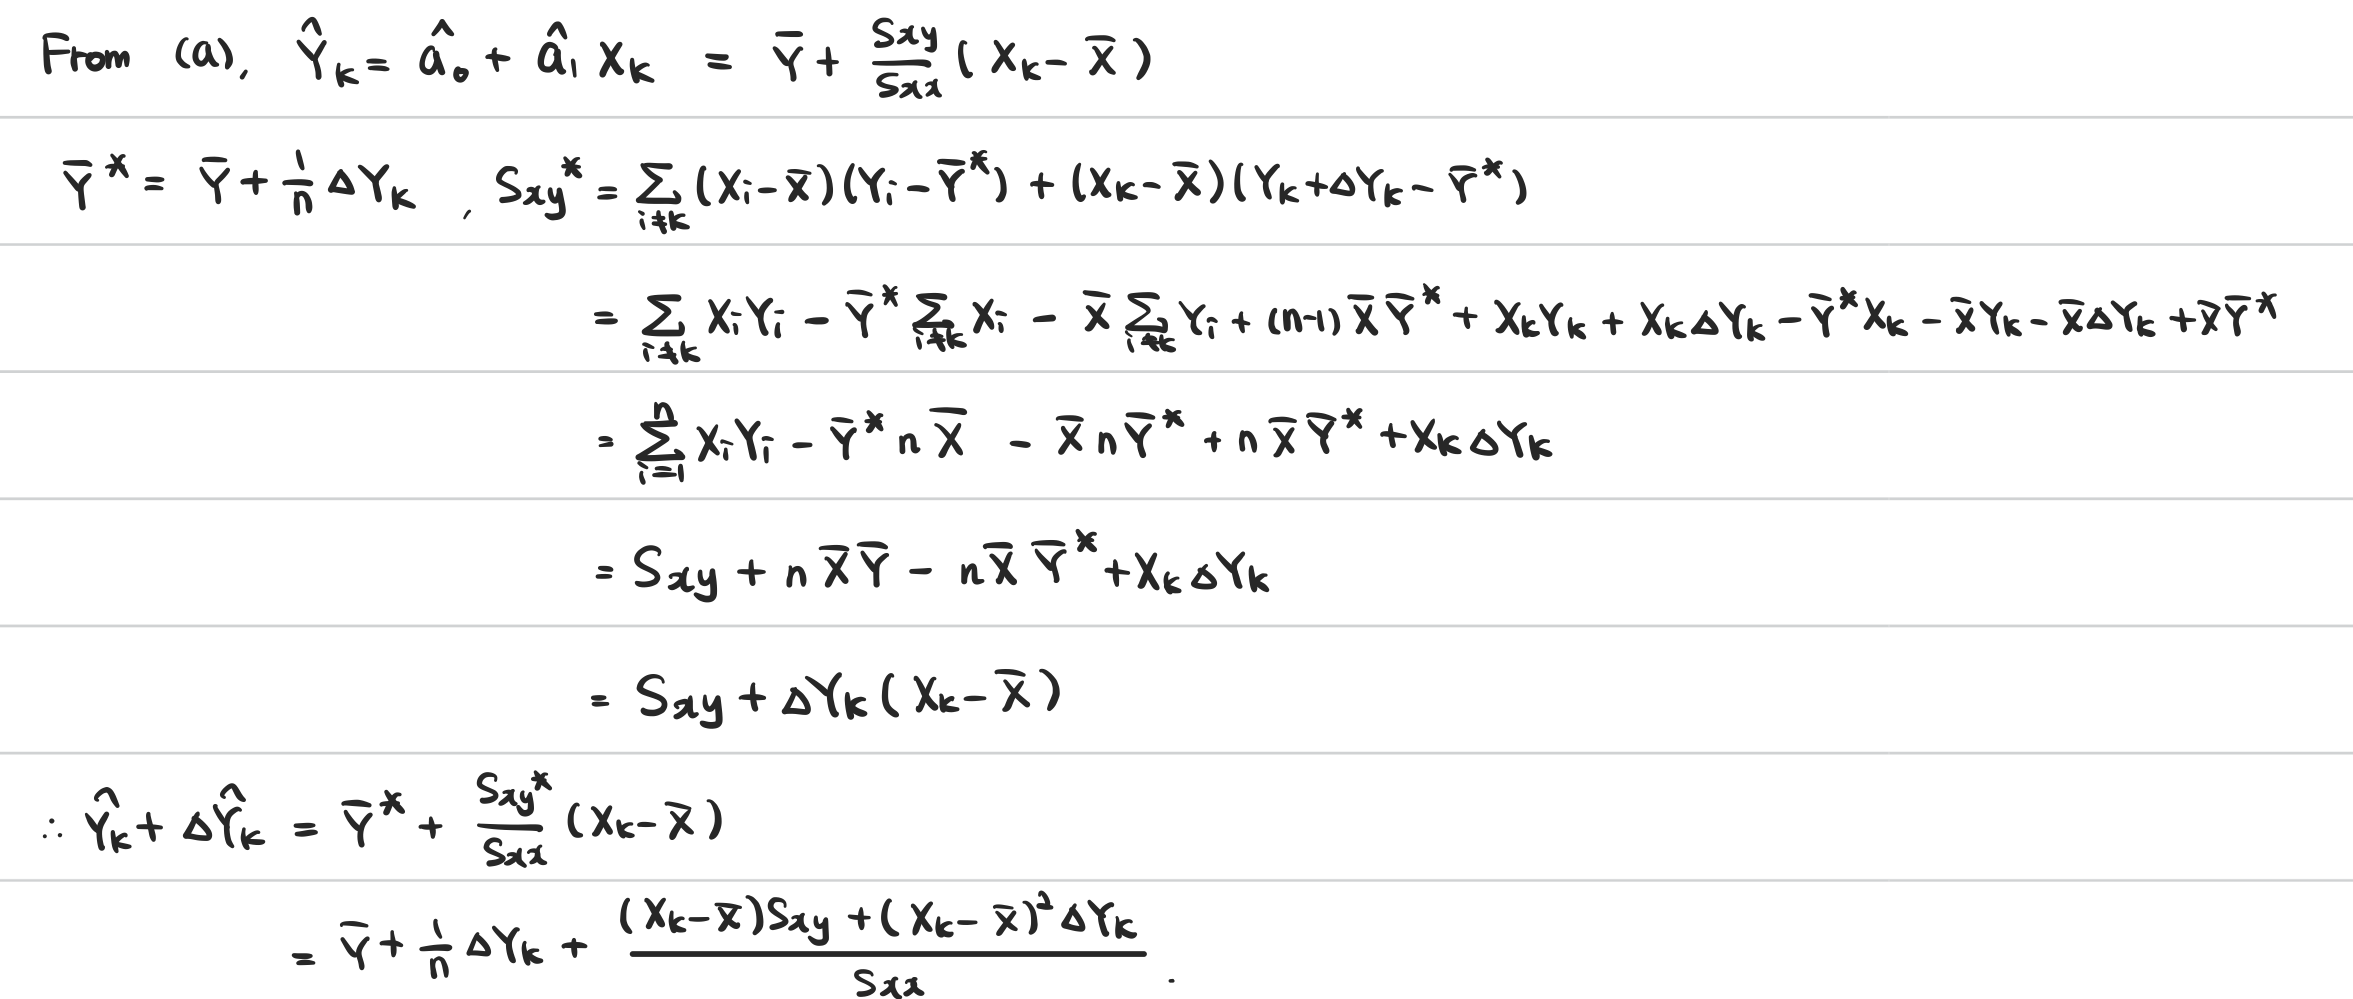 From (a), Ŷₖ = â₀ + â₁ Xₖ = Ȳ + Sxy/Sxx (Xₖ − X̄)
Ȳ* = Ȳ + 1/n ΔYₖ , Sxy* = Σ_{i≠k} (Xᵢ − X̄)(Yᵢ − Ȳ*) + (Xₖ − X̄)(Yₖ + ΔYₖ − Ȳ*)
= Σ_{i≠k} XᵢYᵢ − Ȳ* Σ_{i≠k} Xᵢ − X̄ Σ_{i≠k} Yᵢ + (n−1) X̄ Ȳ* + XₖYₖ + XₖΔYₖ − Ȳ*Xₖ − X̄Yₖ − X̄ΔYₖ + X̄Ȳ*
= Σ_{i=1}^{n} XᵢYᵢ − Ȳ* n X̄ − X̄ n Ȳ* + n X̄ Ȳ* + Xₖ ΔYₖ
= Sxy + n X̄ Ȳ − n X̄ Ȳ* + Xₖ ΔYₖ
= Sxy + ΔYₖ (Xₖ − X̄)
∴ Ŷₖ + ΔŶₖ = Ȳ* + Sxy*/Sxx (Xₖ − X̄)
= Ȳ + 1/n ΔYₖ + ((Xₖ − X̄)Sxy + (Xₖ − X̄)² ΔYₖ)/Sxx .